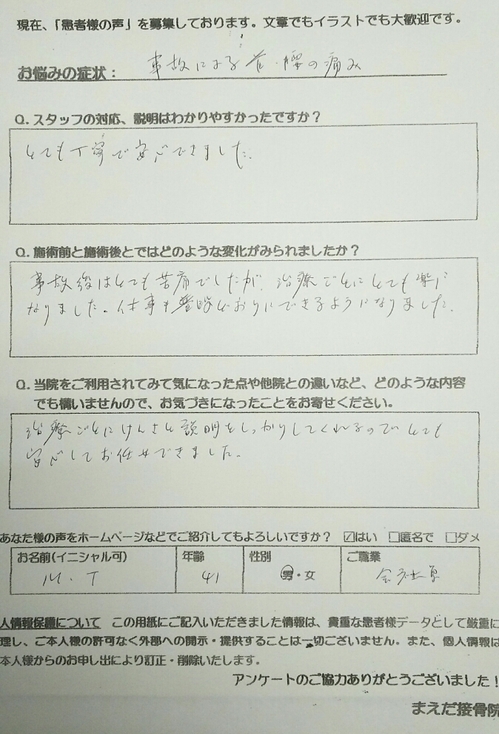 現在、「患者様の声」を募集しております。文章でもイラストでも大歓迎です。
お悩みの症状： 事故による首・腰の痛み
Q. スタッフの対応、説明はわかりやすかったですか？
とても丁寧で安心できました。
Q. 施術前と施術後とではどのような変化がみられましたか？
事故後はとても苦痛でしたが、治療ごとにとても楽に
なりました。仕事も普段どおりにできるようになりました。
Q. 当院をご利用されてみて気になった点や他院との違いなど、どのような内容
でも構いませんので、お気づきになったことをお寄せください。
治療ごとにけんさと説明をしっかりしてくれるのでとても
安心してお任せできました。
あなた様の声をホームページなどでご紹介してもよろしいですか？ ☑はい □匿名で □ダメ
お名前(イニシャル可) 年齢 性別 ご職業
M.T 41 男・女 会社員
人情報保護について この用紙にご記入いただきました情報は、貴重な患者様データとして厳重に
理し、ご本人様の許可なく外部への開示・提供することは一切ございません。また、個人情報は
本人様からのお申し出により訂正・削除いたします。
アンケートのご協力ありがとうございました！
まえだ接骨院